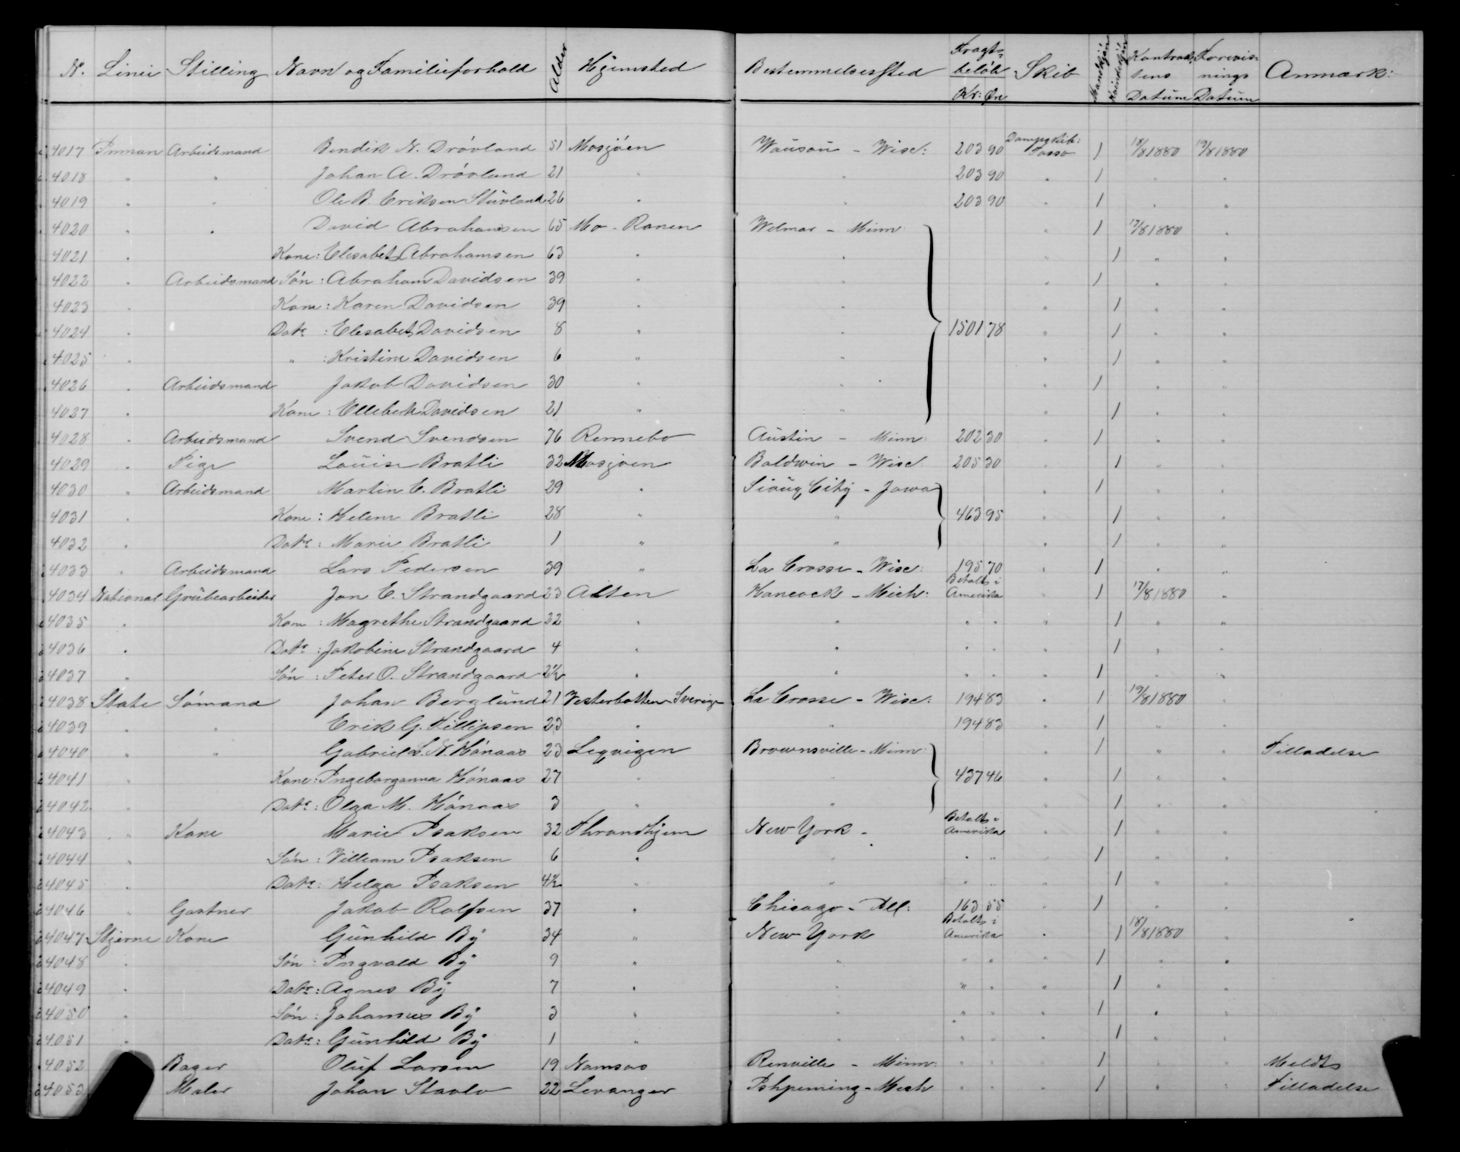 N. Linie Stilling Navn og Familieforhold Alder Hjemsted Bestemmelsessted Fragtbeløb Kr: Øre Skib Mandkjön Kvindekjön Kontraktens Datum Forevisnings Datum Anmærk:
4017 Inman Arbeidsmand Bendik N. Drövland 51 Mosjöen Wausau - Wisc: 203 90 Dampskib: Tasso 1 1880 1880
4018 " " Johan A. Drövland 21 " " 203 90 " 1 " "
4019 " " Ole B. Eriksen Stuvland 26 " " 203 90 " 1 " "
4020 " " David Abrahamsen 65 Mo - Ranen Wilmar - Minn " 1 17/8 1880 "
4021 " Kone: Elisabet Abrahamsen 63 " " " 1 " "
4022 " Arbeidsmand Sön: Abraham Davidsen 39 " " " 1 " "
4023 " Kone: Karen Davidsen 39 " " " 1 " "
4024 " Datr: Elisabet Davidsen 8 " " 1501 78 " 1 " "
4025 " " : Kristine Davidsen 6 " " " 1 " "
4026 " Arbeidsmand Jakob Davidsen 30 " " " 1 " "
4027 " Kone: Davidsen 21 " " " 1 " "
4028 " Arbeidsmand Svend Svendsen 76 Rennebo Austin - Minn: 202 30 " 1 " "
4029 " Pige Louise Bratli 32 Mosjöen Baldwin - Wisc 205 30 " 1 " "
4030 " Arbeidsmand Martin E. Bratli 29 " Sioux City - Jowa " 1 " "
4031 " Kone: Helene Bratli 28 " " 463 95 " 1 " "
4032 " Datr: Marie Bratli 1 " " " 1 " "
4033 " Arbeidsmand Lars Pedersen 39 " La Crosse - Wisc: 195 70 " 1 " "
4034 National Grubearbeider Jon E. Strandgaard 23 Alten Hancock - Mich: Betalt i Amerika 1 17/8 1880 "
4035 " Kone: Magrethe Strandgaard 22 " " " " " 1 " "
4036 " Datr: Jakobine Strandgaard 4 " " " " " 1 " "
4037 " Sön: Peter O. Strandgaard 2½ " " " " " 1 " "
4038 State Sömand Johan Berglund 21 Vesterbotten - Sverige La Crosse - Wisc: 194 83 " 1 1880 "
4039 " " Erik G. Fillipsen 23 " " 194 83 " 1 " "
4040 " " Gabriel L. N. Hönaas 23 Leqvigen Brownsville - Minn: " 1 " " Tilladelse
4041 " Kone: Ingeborganna Hönaas 27 " " 437 46 " 1 " "
4042 " Datr: Olga M. Hönaas 3 " " " 1 " "
4043 " Kone Marie Isaksen 32 Throndhjem New York - Betalt i Amerika " 1 " "
4044 " Sön: William Isaksen 6 " " " " " 1 " "
4045 " Datr: Helga Isaksen 4½ " " " " " 1 " "
4046 " Gartner Jakob Rolfsen 37 " Chicago - Ill: 163 55 " 1 " "
4047 Stjerne Kone Gunhild By 34 " New York Betalt i Amerika " 1 18/8 1880 "
4048 " Sön: Ingvald By 9 " " " " " 1 " "
4049 " Datr: Agnes By 7 " " " " " 1 " "
4050 " Sön: Johannes By 3 " " " " " 1 " "
4051 " Datr: Gunhild By 1 " " " " " 1 " "
4052 Bager Oluf Larsen 19 Namsos Renville - Minn: " " " 1 " " Meldt
4053 Maler Johan 22 Levanger Ishpeming - Mich " " " 1 " " Tilladelse